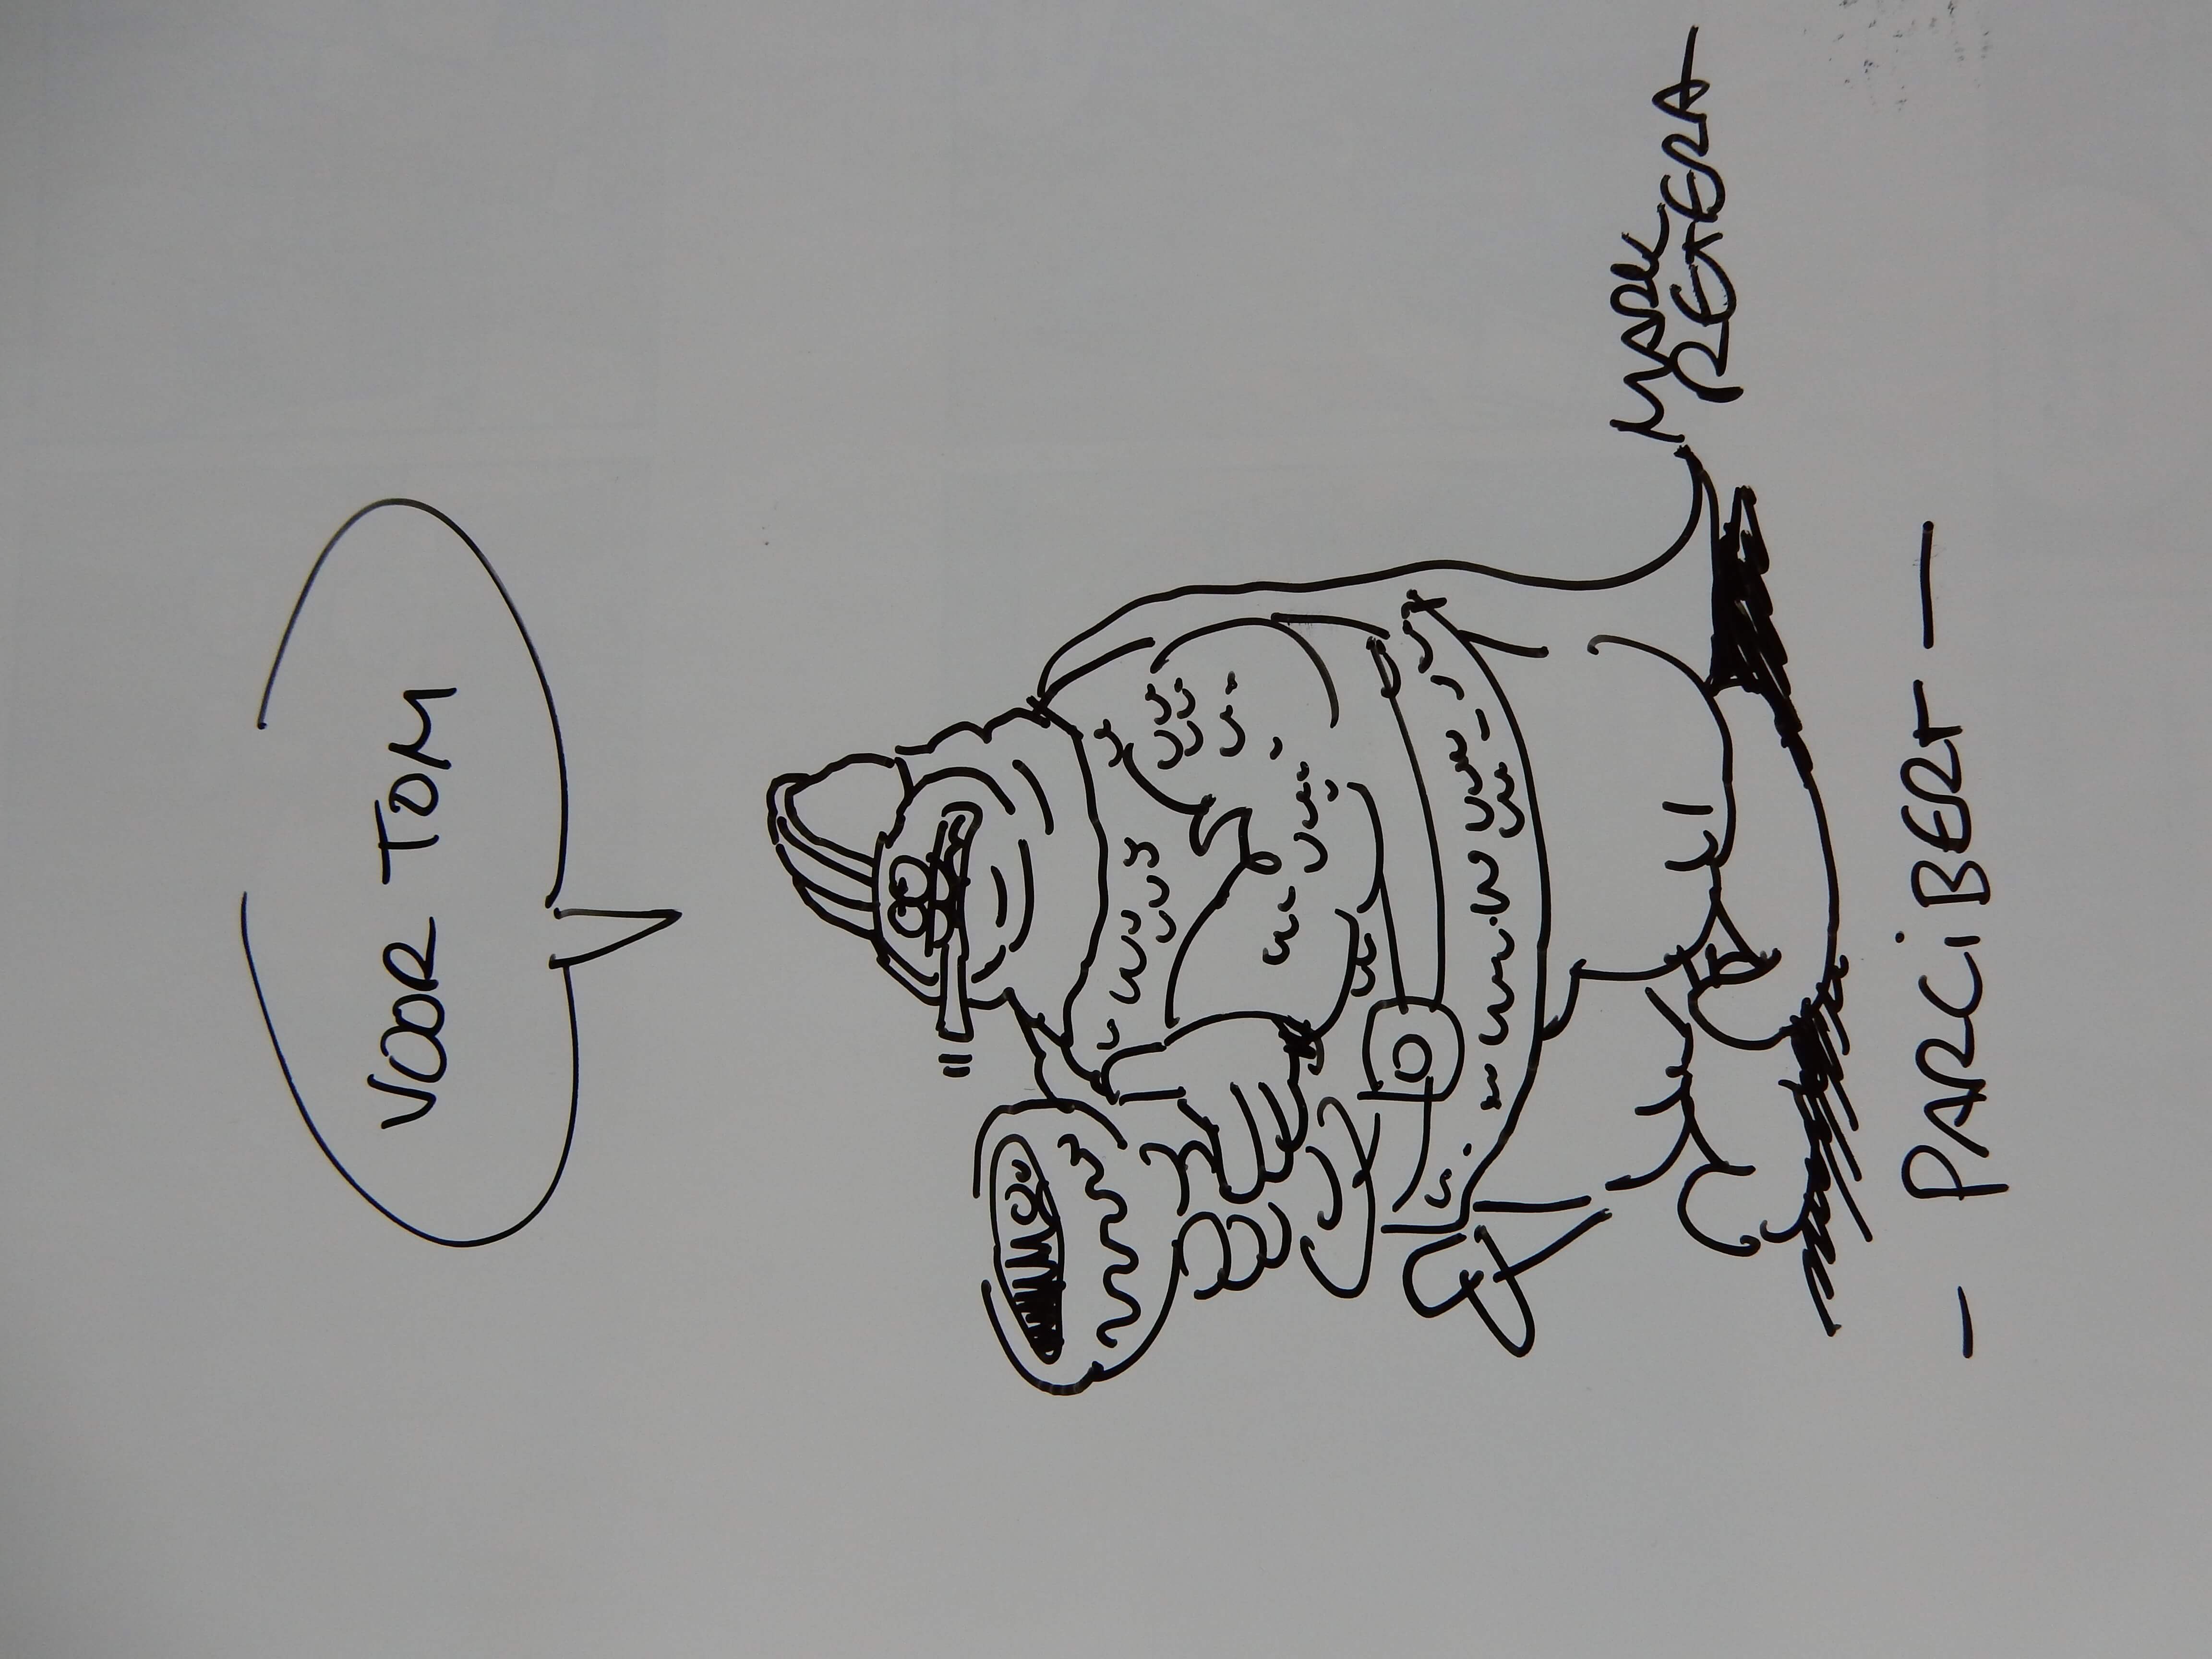 VOOR TOM
MARK
RETERA
- PARCiBERT -